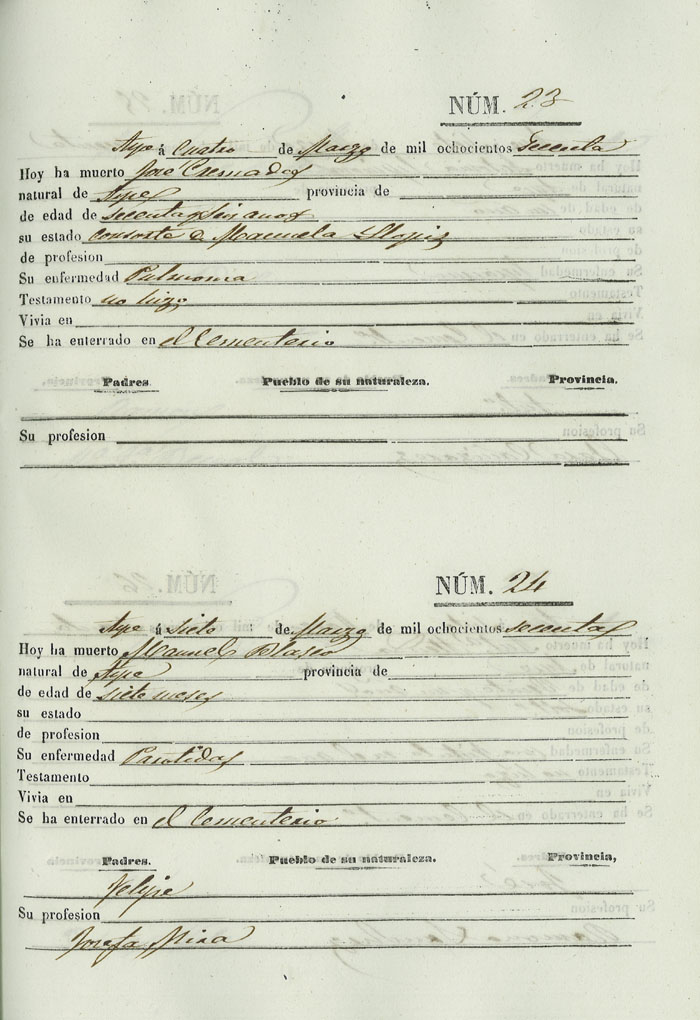 NÚM. 23
Aspe á Cuatro de Marzo de mil ochocientos Secenta
Hoy ha muerto José Cremades
natural de Aspe provincia de
de edad de secenta y seis anos
su estado consorte de Manuela Llopis
de profesion
Su enfermedad Pulmonia
Testamento no hizo
Vivia en
Se ha enterrado en el Cementerio
Padres. Pueblo de su naturaleza. Provincia.
Su profesion
NÚM. 24
Aspe á Siete de Marzo de mil ochocientos secenta
Hoy ha muerto Manuel Blasco
natural de Aspe provincia de
de edad de siete meses
su estado
de profesion
Su enfermedad Parotidas
Testamento
Vivia en
Se ha enterrado en el Cementerio
Padres. Pueblo de su naturaleza. Provincia,
Felipe
Su profesion
Josefa Mira